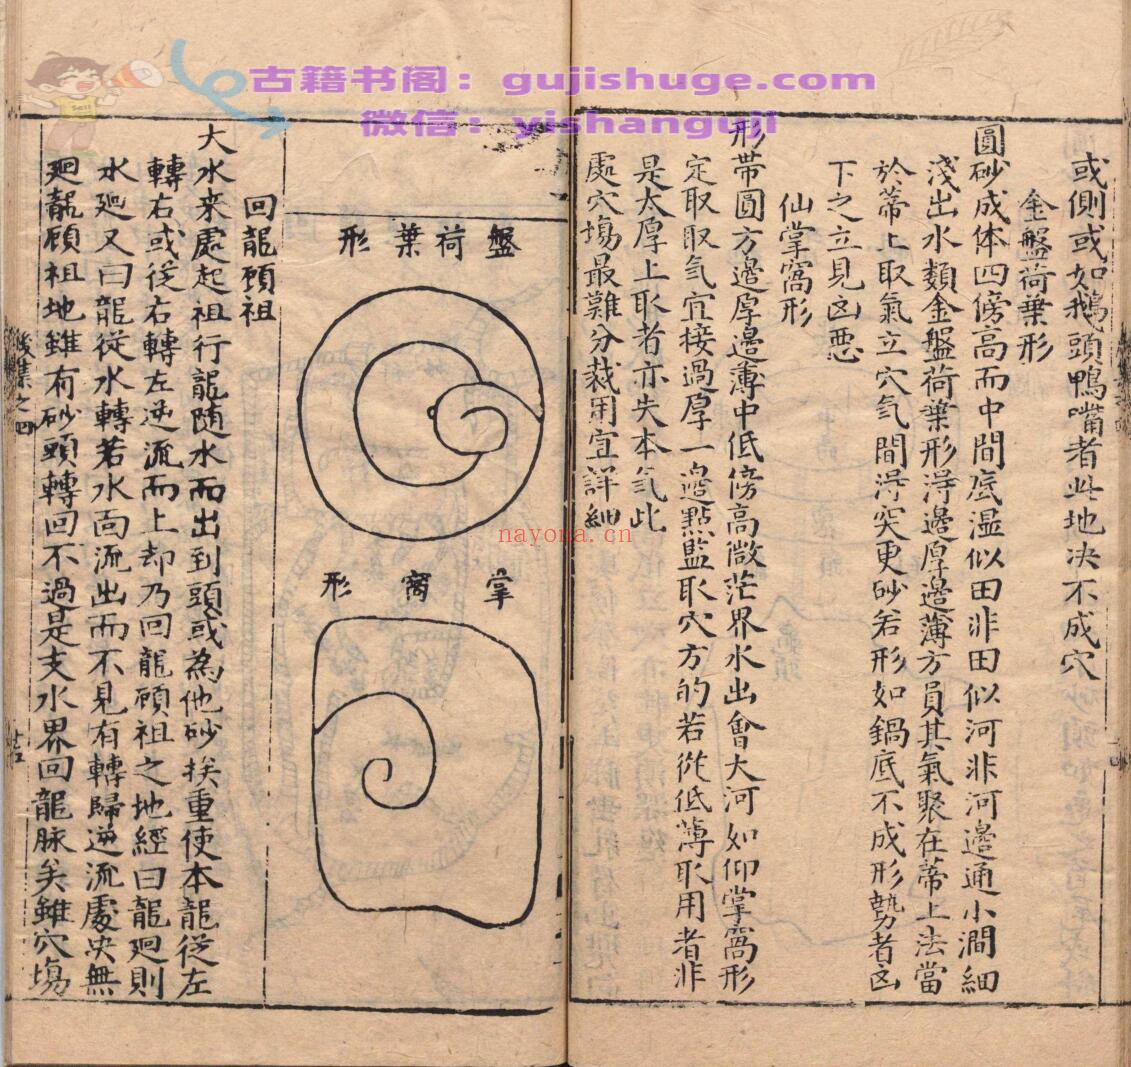 古籍书阁：gujishuge.com
微信：yishanguji
Sall
或側或如鵝頭鴨嘴者此地决不成穴
金盤荷葉形
圓砂成体四傍高而中間底湿似田非田似河非河邊通小澗細
淺出水類金盤荷葉形浔邊厚邊薄方員其氣聚在蒂上法當
於蒂上取氣立穴氣間浔突更砂若形如鍋底不成形勢者凶
下之立見凶惡
仙掌窩形
形帶圓方邊厚邊薄中低傍高微茫界水出會大河如仰掌窩形
定取取氣宜接過厚一邊點監取穴方的若從低薄取用者非
是太厚上取者亦失本氣此
處穴塲最難分裁用宜詳細
nayona.cn
盤荷葉形
掌窩形
回龍顧祖
大水来處起祖行龍随水而出到頭或為他砂挨重使本龍從左
轉右或從右轉左逆流而上却乃回龍顧祖之地經曰龍廻則
水廻又曰龍從水轉若水面流出而不見有轉歸逆流處决無
廻龍顧祖地雖有砂頭轉回不過是支水界回龍脉矣雖穴塲
後集之四